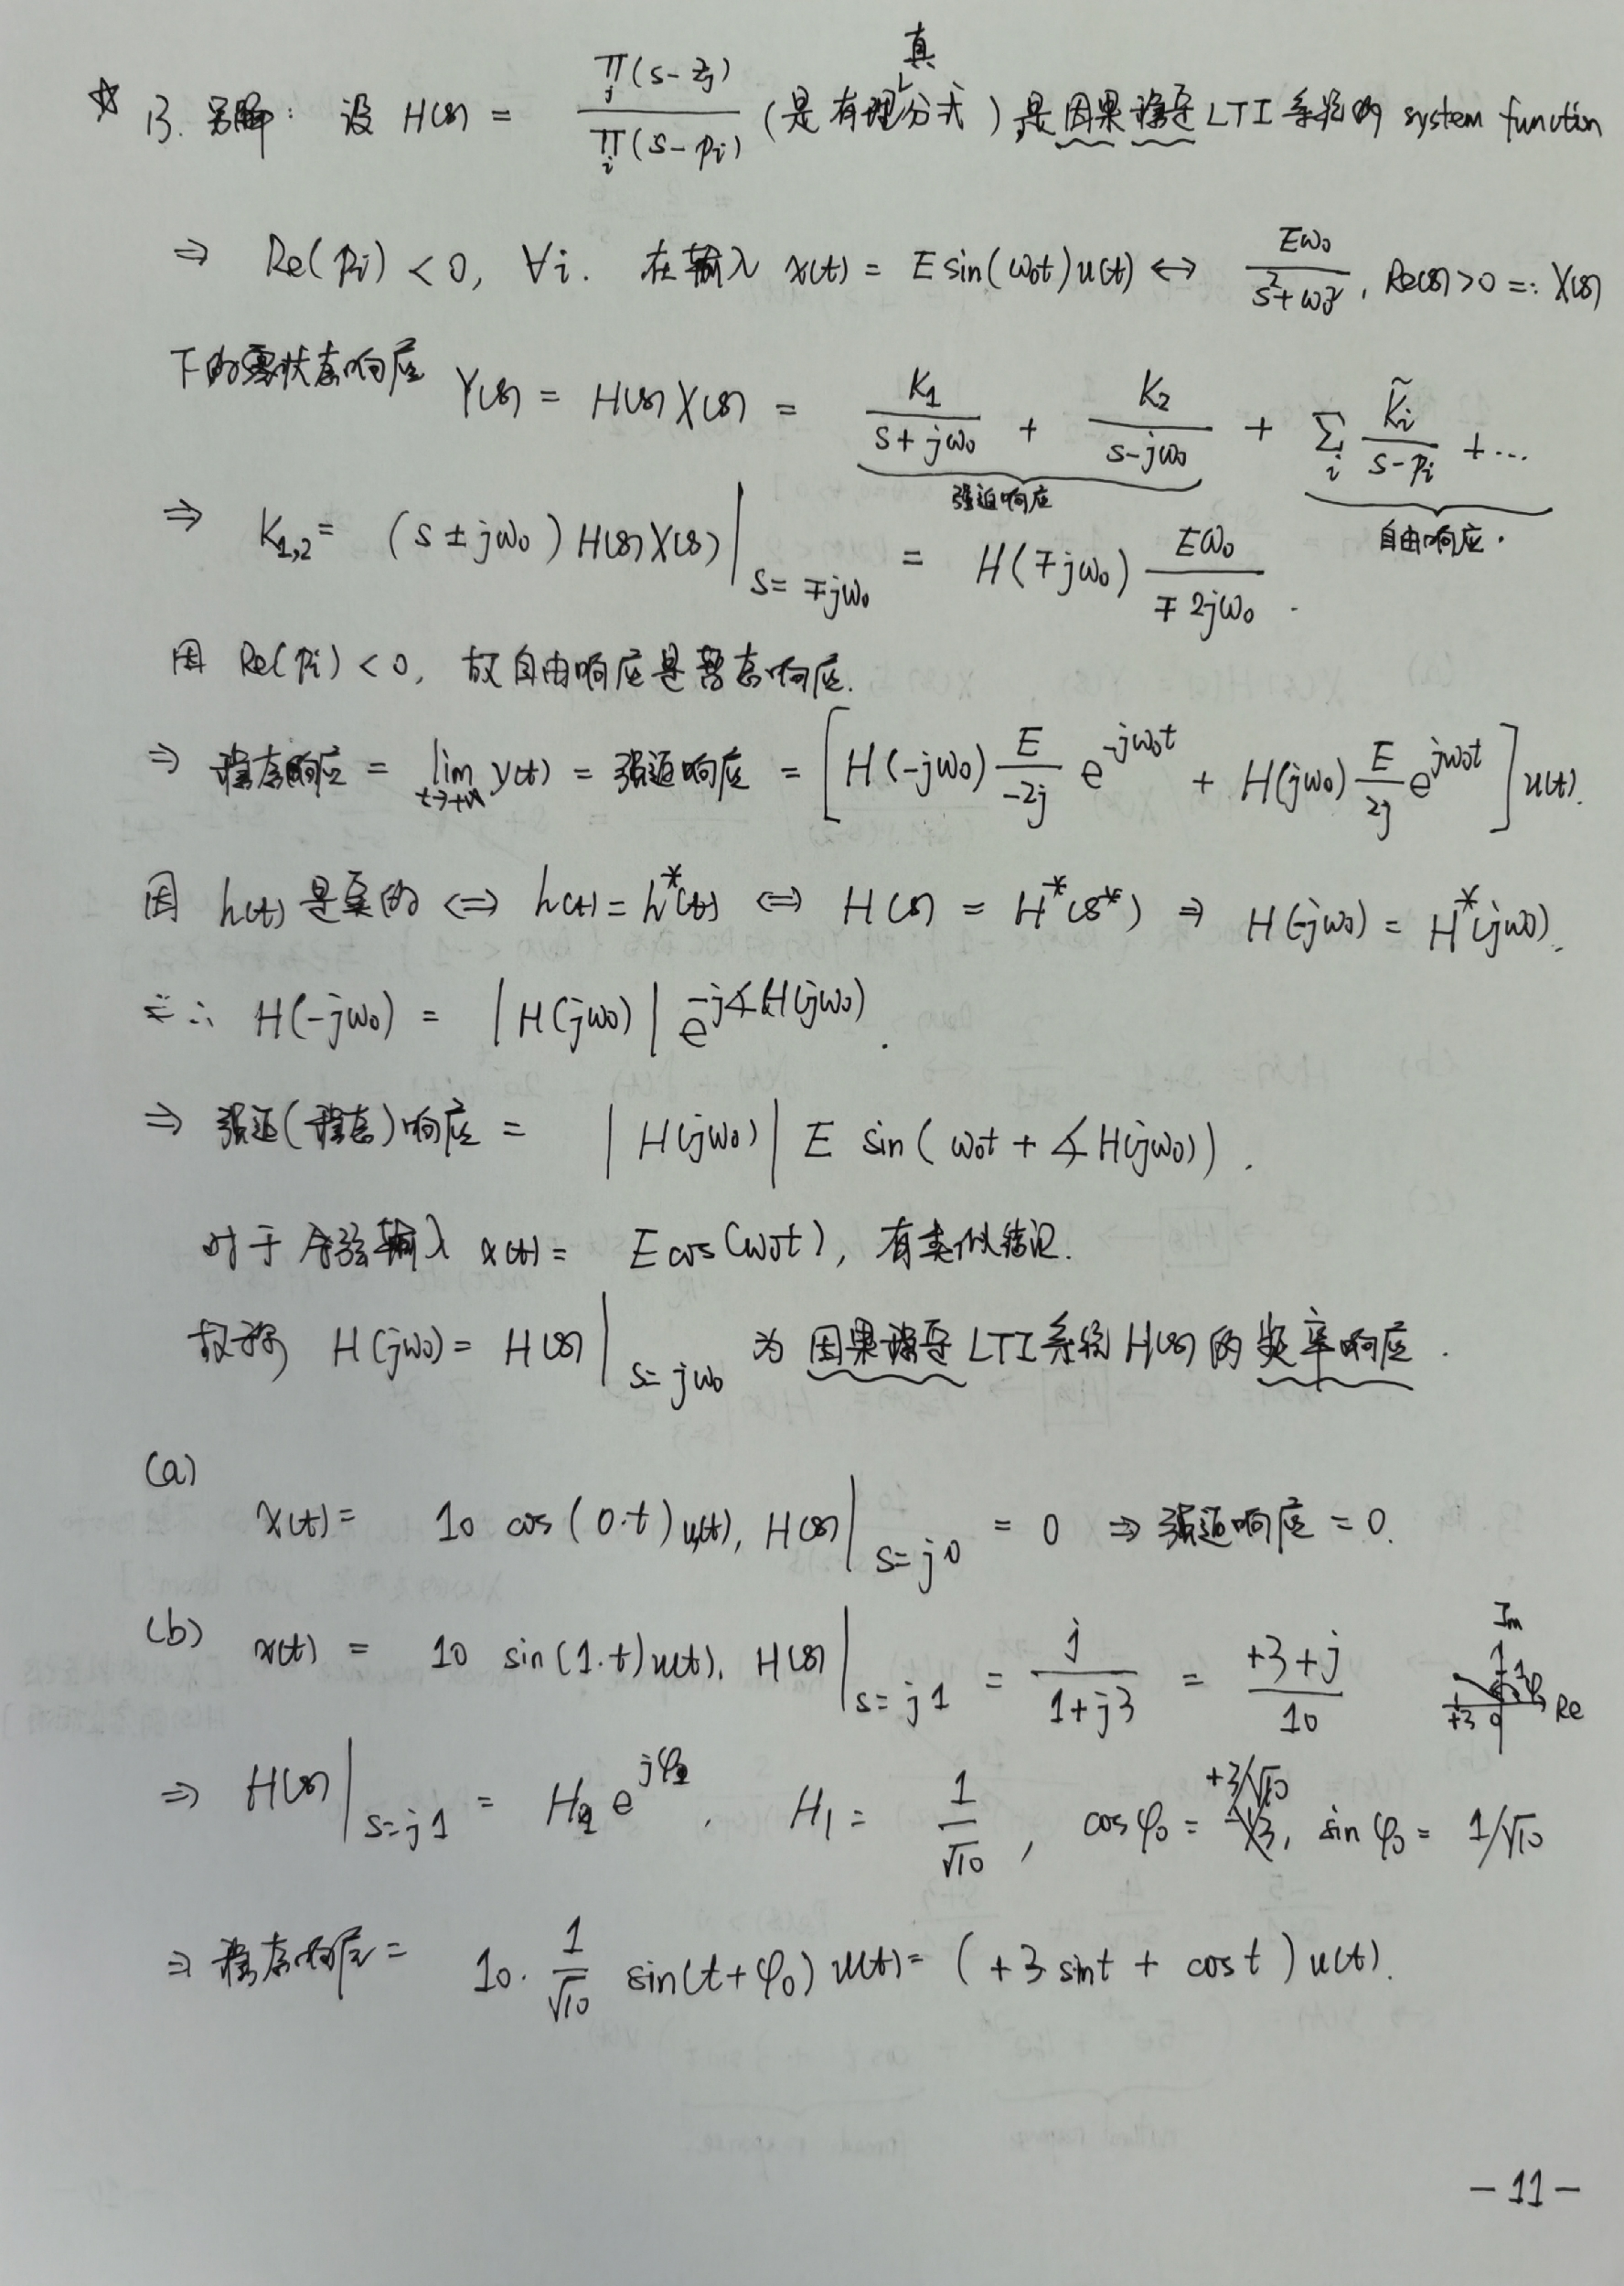 ☆ 13. 另解: 设 H(s) = ∏_j(s-z_j) / ∏_i(s-p_i) (是有理真分式) 是因果稳定LTI系统的 system function
⇒ Re(p_i) < 0, ∀i. 在输入 x(t) = E sin(ω₀t)u(t) ↔ Eω₀/(s²+ω₀²), Re(s)>0 =: X(s)
下的零状态响应 Y(s) = H(s)X(s) = K₁/(s+jω₀) + K₂/(s-jω₀) + Σ_i K̃_i/(s-p_i) + ...
强迫响应
自由响应.
⇒ K₁,₂ = (s ± jω₀) H(s)X(s) |_{s=∓jω₀} = H(∓jω₀) Eω₀/(∓2jω₀) .
因 Re(p_i) < 0, 故自由响应是暂态响应.
⇒ 稳态响应 = lim_{t→+∞} y(t) = 强迫响应 = [ H(-jω₀) E/(-2j) e^{-jω₀t} + H(jω₀) E/(2j) e^{jω₀t} ] u(t).
因 h(t) 是实的 ⇔ h(t) = h*(t) ⇔ H(s) = H*(s*) ⇒ H(-jω₀) = H*(jω₀).
∴ H(-jω₀) = |H(jω₀)| e^{-j∡H(jω₀)} .
⇒ 强迫(稳态)响应 = |H(jω₀)| E sin(ω₀t + ∡H(jω₀)) .
对于余弦输入 x(t) = E cos(ω₀t), 有类似结论.
故称 H(jω₀) = H(s) |_{s=jω₀} 为因果稳定LTI系统H(s)的频率响应 .
(a)
x(t) = 10 cos(0·t)u(t), H(s) |_{s=j0} = 0 ⇒ 强迫响应 = 0.
(b) x(t) = 10 sin(1·t)u(t). H(s) |_{s=j1} = j/(1+j3) = (+3+j)/10
Im
1
φ₀
+3 0 Re
⇒ H(s) |_{s=j1} = H₁ e^{jφ₀} , H₁ = 1/√10 , cosφ₀ = +3/√10, sinφ₀ = 1/√10
⇒ 稳态响应 = 10 · 1/√10 sin(t+φ₀) u(t) = (+3 sint + cost) u(t).
- 11 -